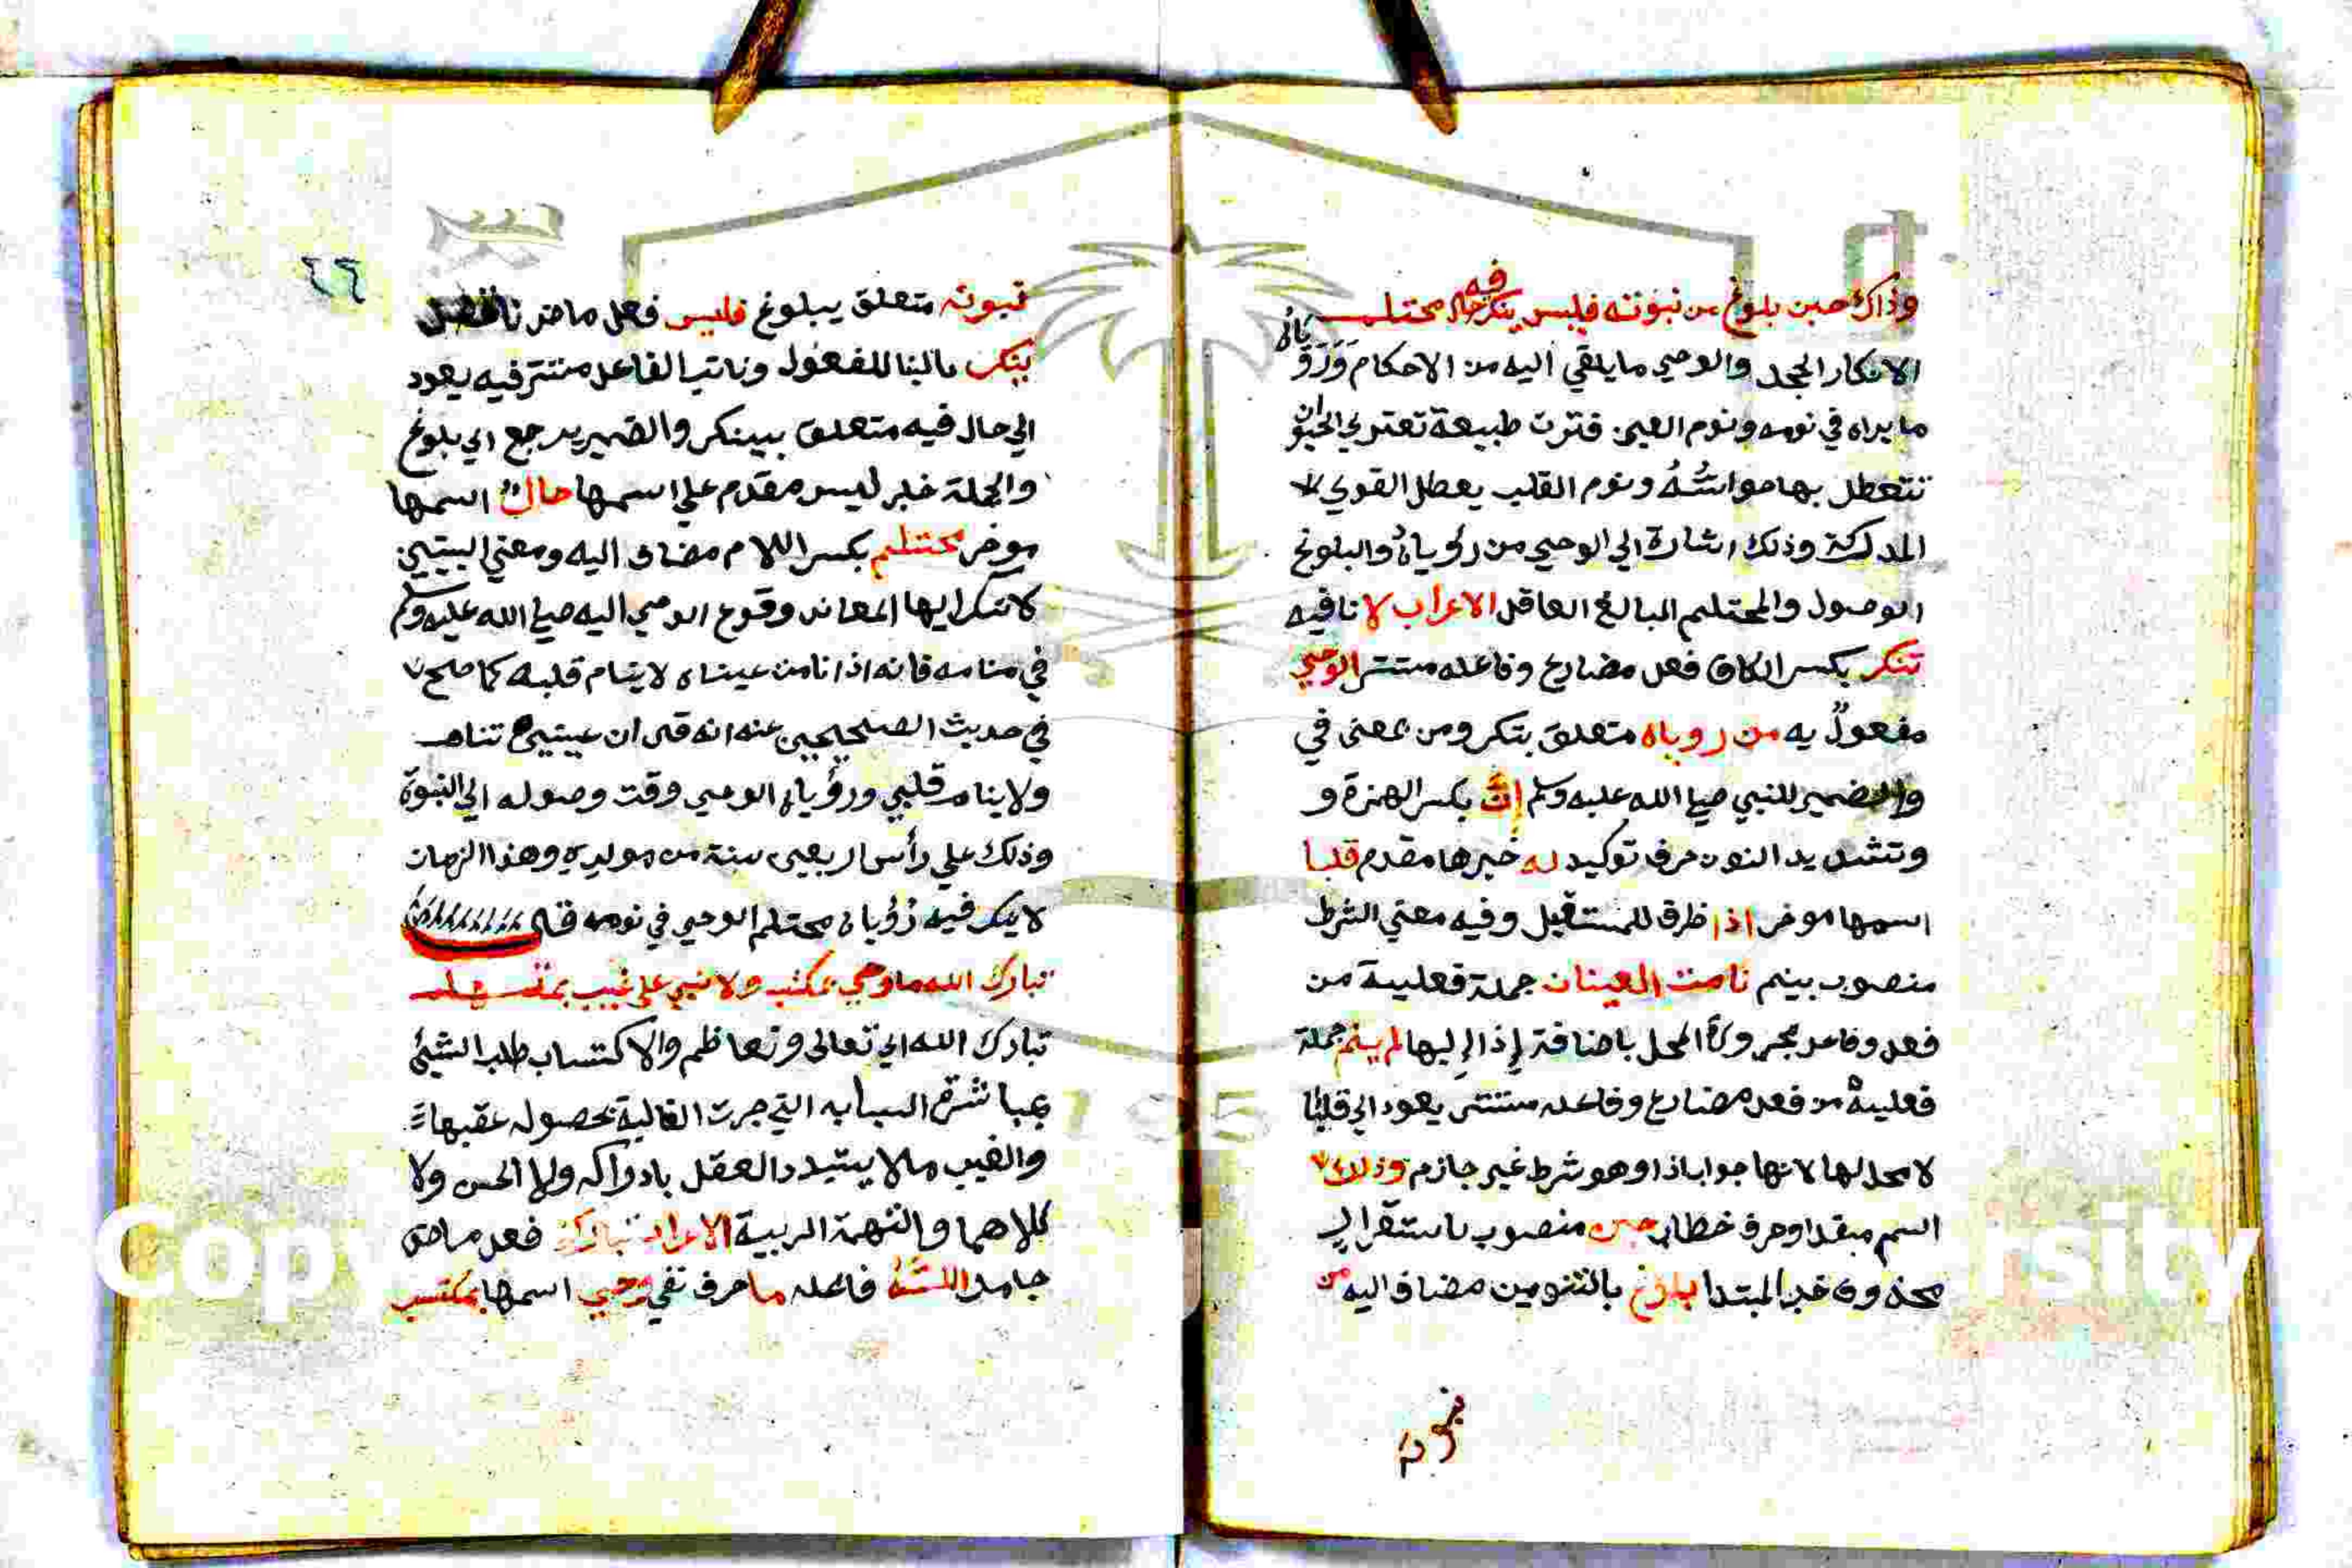 وذاك حين بلوغ من نبوته فليس ينكر فيه حال محتلم
الانكار الجحد والوحي ما يلقي اليه من الاحكام وَرَوَياه
ما يراه في نومه ونوم العين فترت طبيعة تعتري الحيوان
تتعطل بها حواسُّهُ ونوم القلب يعطل القوي
المدركة وذلك اشارة الي الوحي من رؤياهُ والبلوغ
الوصول والمحتلم البالغ العاقل الاعراب لا نافيه
تنكر بكسر الكاف فعل مضارع وفاعله مستتر الوحي
مفعولٌ به من روياه متعلق بتنكر ومن بمعنى في
والضمير للنبي صلي الله عليه وسلم إنَّ بكسر الهمزة و
وتشديد النون حرف توكيد له خبرها مقدم قلبا
اسمها موخر اذا ظرف للمستقبل وفيه معني الشرط
منصوب بينم نامت العينان جملة فعلية من
فعل وفاعل مجرورة المحل باضافة إذا إليها لم ينم جملة
فعلية من فعل مضارع وفاعله مستتر يعود الي قلبًا
لا محل لها لانها جواب اذا وهو شرط غير جازم وذلك
اسم مبتدا وحرف خطاب حين منصوب باستقرار
محذوف خبر المبتدا بلوغ بالتنوين مضاف اليه من
٢٦
نبوته متعلق ببلوغ فليس فعل ماض ناقص
ينكر بالبنا للمفعول ونائب الفاعل مستتر فيه يعود
الي حال فيه متعلق بينكر والضمير يرجع الي بلوغ
والجملة خبر ليس مقدم علي اسمها حالُ اسمها
موخر محتلم بكسر اللام مضاف اليه ومعني البيتين
لا تنكر ايها المعاند وقوع الوحي اليه صلي الله عليه وسلم
في منامه فانه اذا نامت عيناه لا ينام قلبه كما صح
في حديث الصحيحين عنه انه قال ان عينيَّ تنام
ولا ينام قلبي ورؤياه الوحي وقت وصوله الي النبوة
وذلك علي رأس اربعين سنة من مولده وهذا الزمان
لا ينكر فيه رؤياه محتلم الوحي في نومه قال
تبارك الله ما وحي بمكتسب ولا نبي علي غيب بمتهم
تبارك الله اي تعالى وتعاظم والاكتساب طلب الشيئ
بمباشرة اسبابه التي جرت الغالبة بحصوله عقبها
والغيب ما لا يستبد العقل بادراكه ولا الحس ولا
كلاهما والتهمة الريبة الاعراب تبارك فعل ماض
جامد اللهُ فاعله ما حرف نفي وحي اسمها بمكتسب